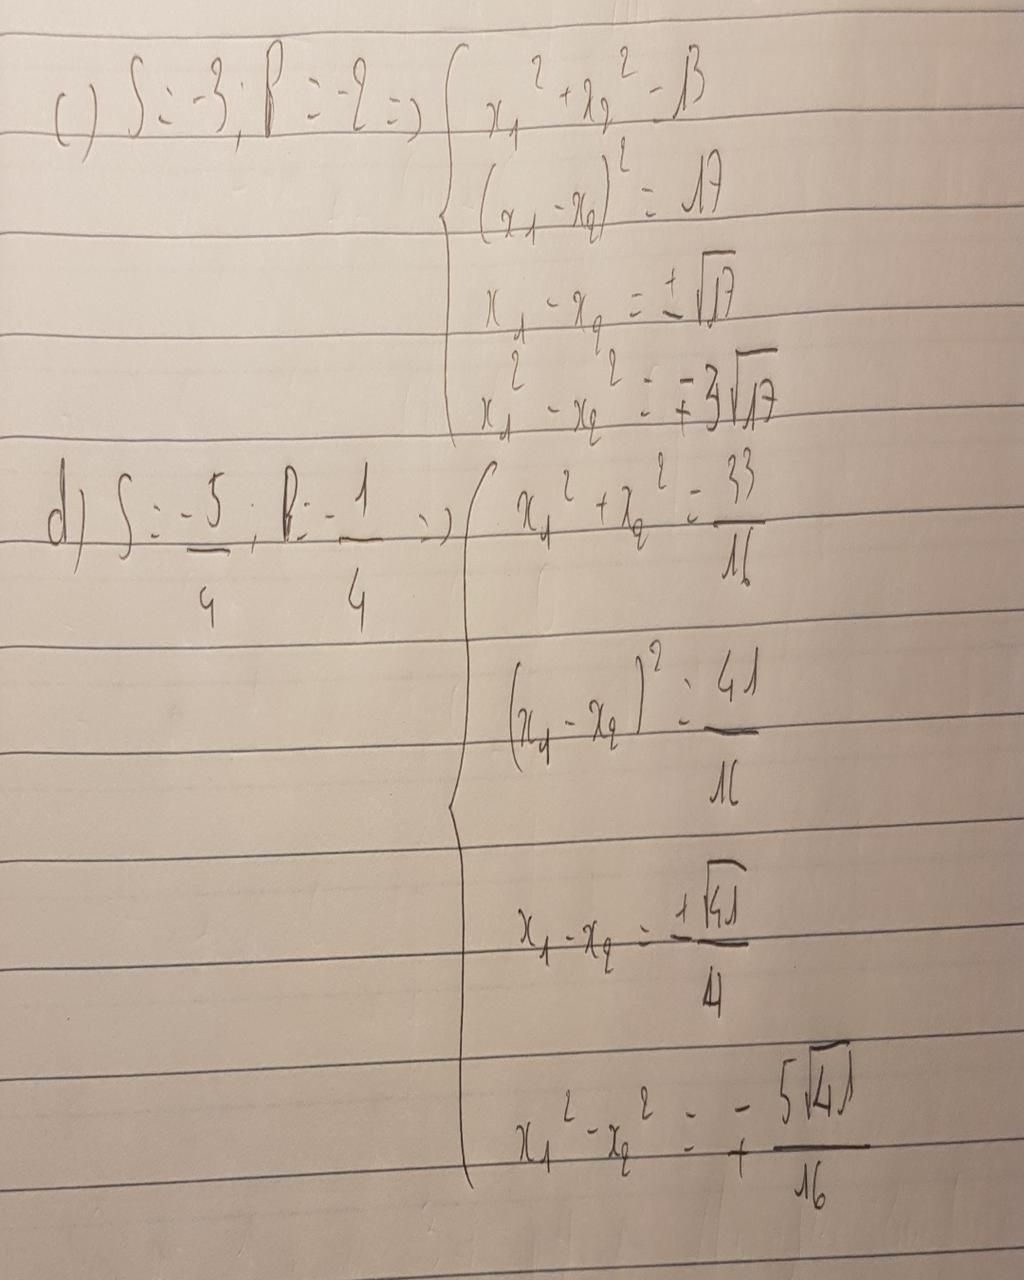 c) S = -3; P = -2 => { x₁² + x₂² = 13
(x₁ - x₂)² = 17
x₁ - x₂ = ±√17
x₁² - x₂² = ∓3√17
d) S = -5/4; P = -1/4 => { x₁² + x₂² = 33/16
(x₁ - x₂)² = 41/16
x₁ - x₂ = ±√41/4
x₁² - x₂² = ∓ 5√41/16